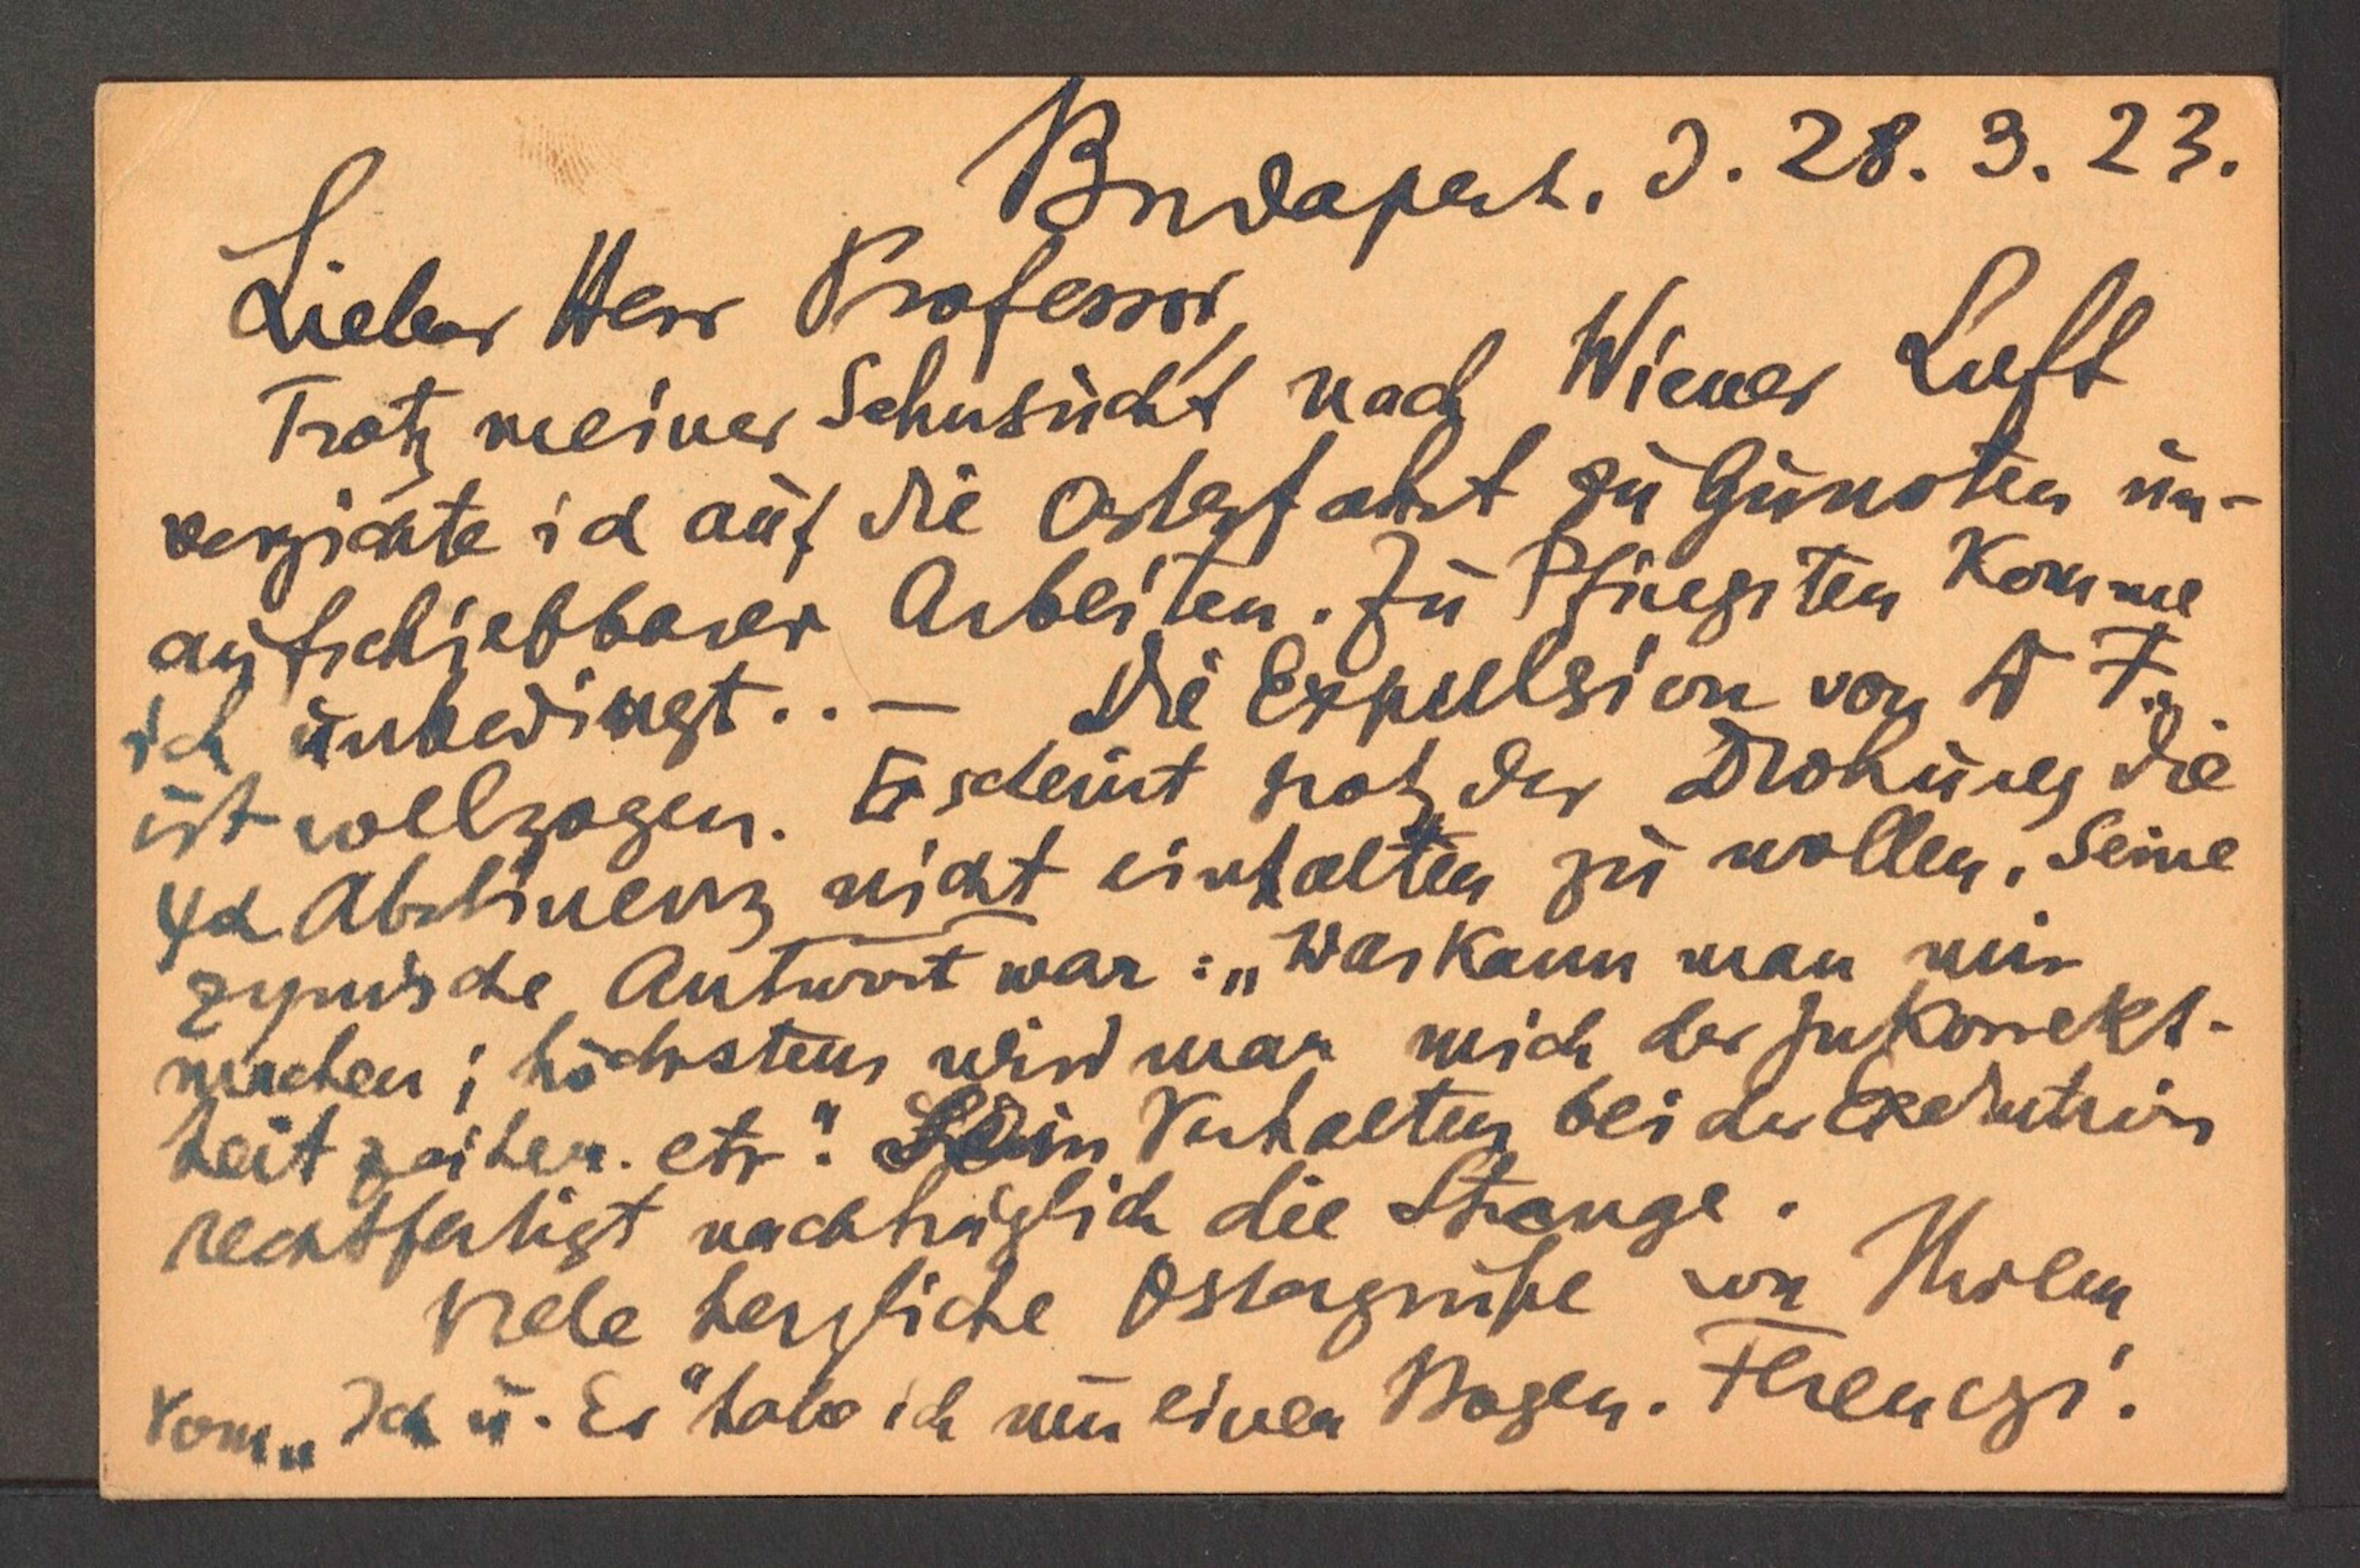 Budapest. d. 28. 3. 23.
Lieber Herr Professor,
Trotz meiner Sehnsucht nach Wiener Luft
verzichte ich auf die Osterfahrt zu Gunsten un-
aufschiebbarer Arbeiten. Zu Pfingsten komme
ich unbedingt.. — Die Expulsion von
ist vollzogen. Er scheint trotz der Drohung die
Abstinenz nicht einhalten zu wollen. Seine
zynische Antwort war: „Was kann man mir
machen; höchstens wird man mich der Inkorrekt-
heit zeihen. etc“. Sein Verhalten bei der Exekution
rechtfertigt nachträglich die Strenge.
Viele herzliche Ostergrüße von Ihrem
Ferenczi.
Vom „Ich u. Es“ habe ich nun einen Bogen.